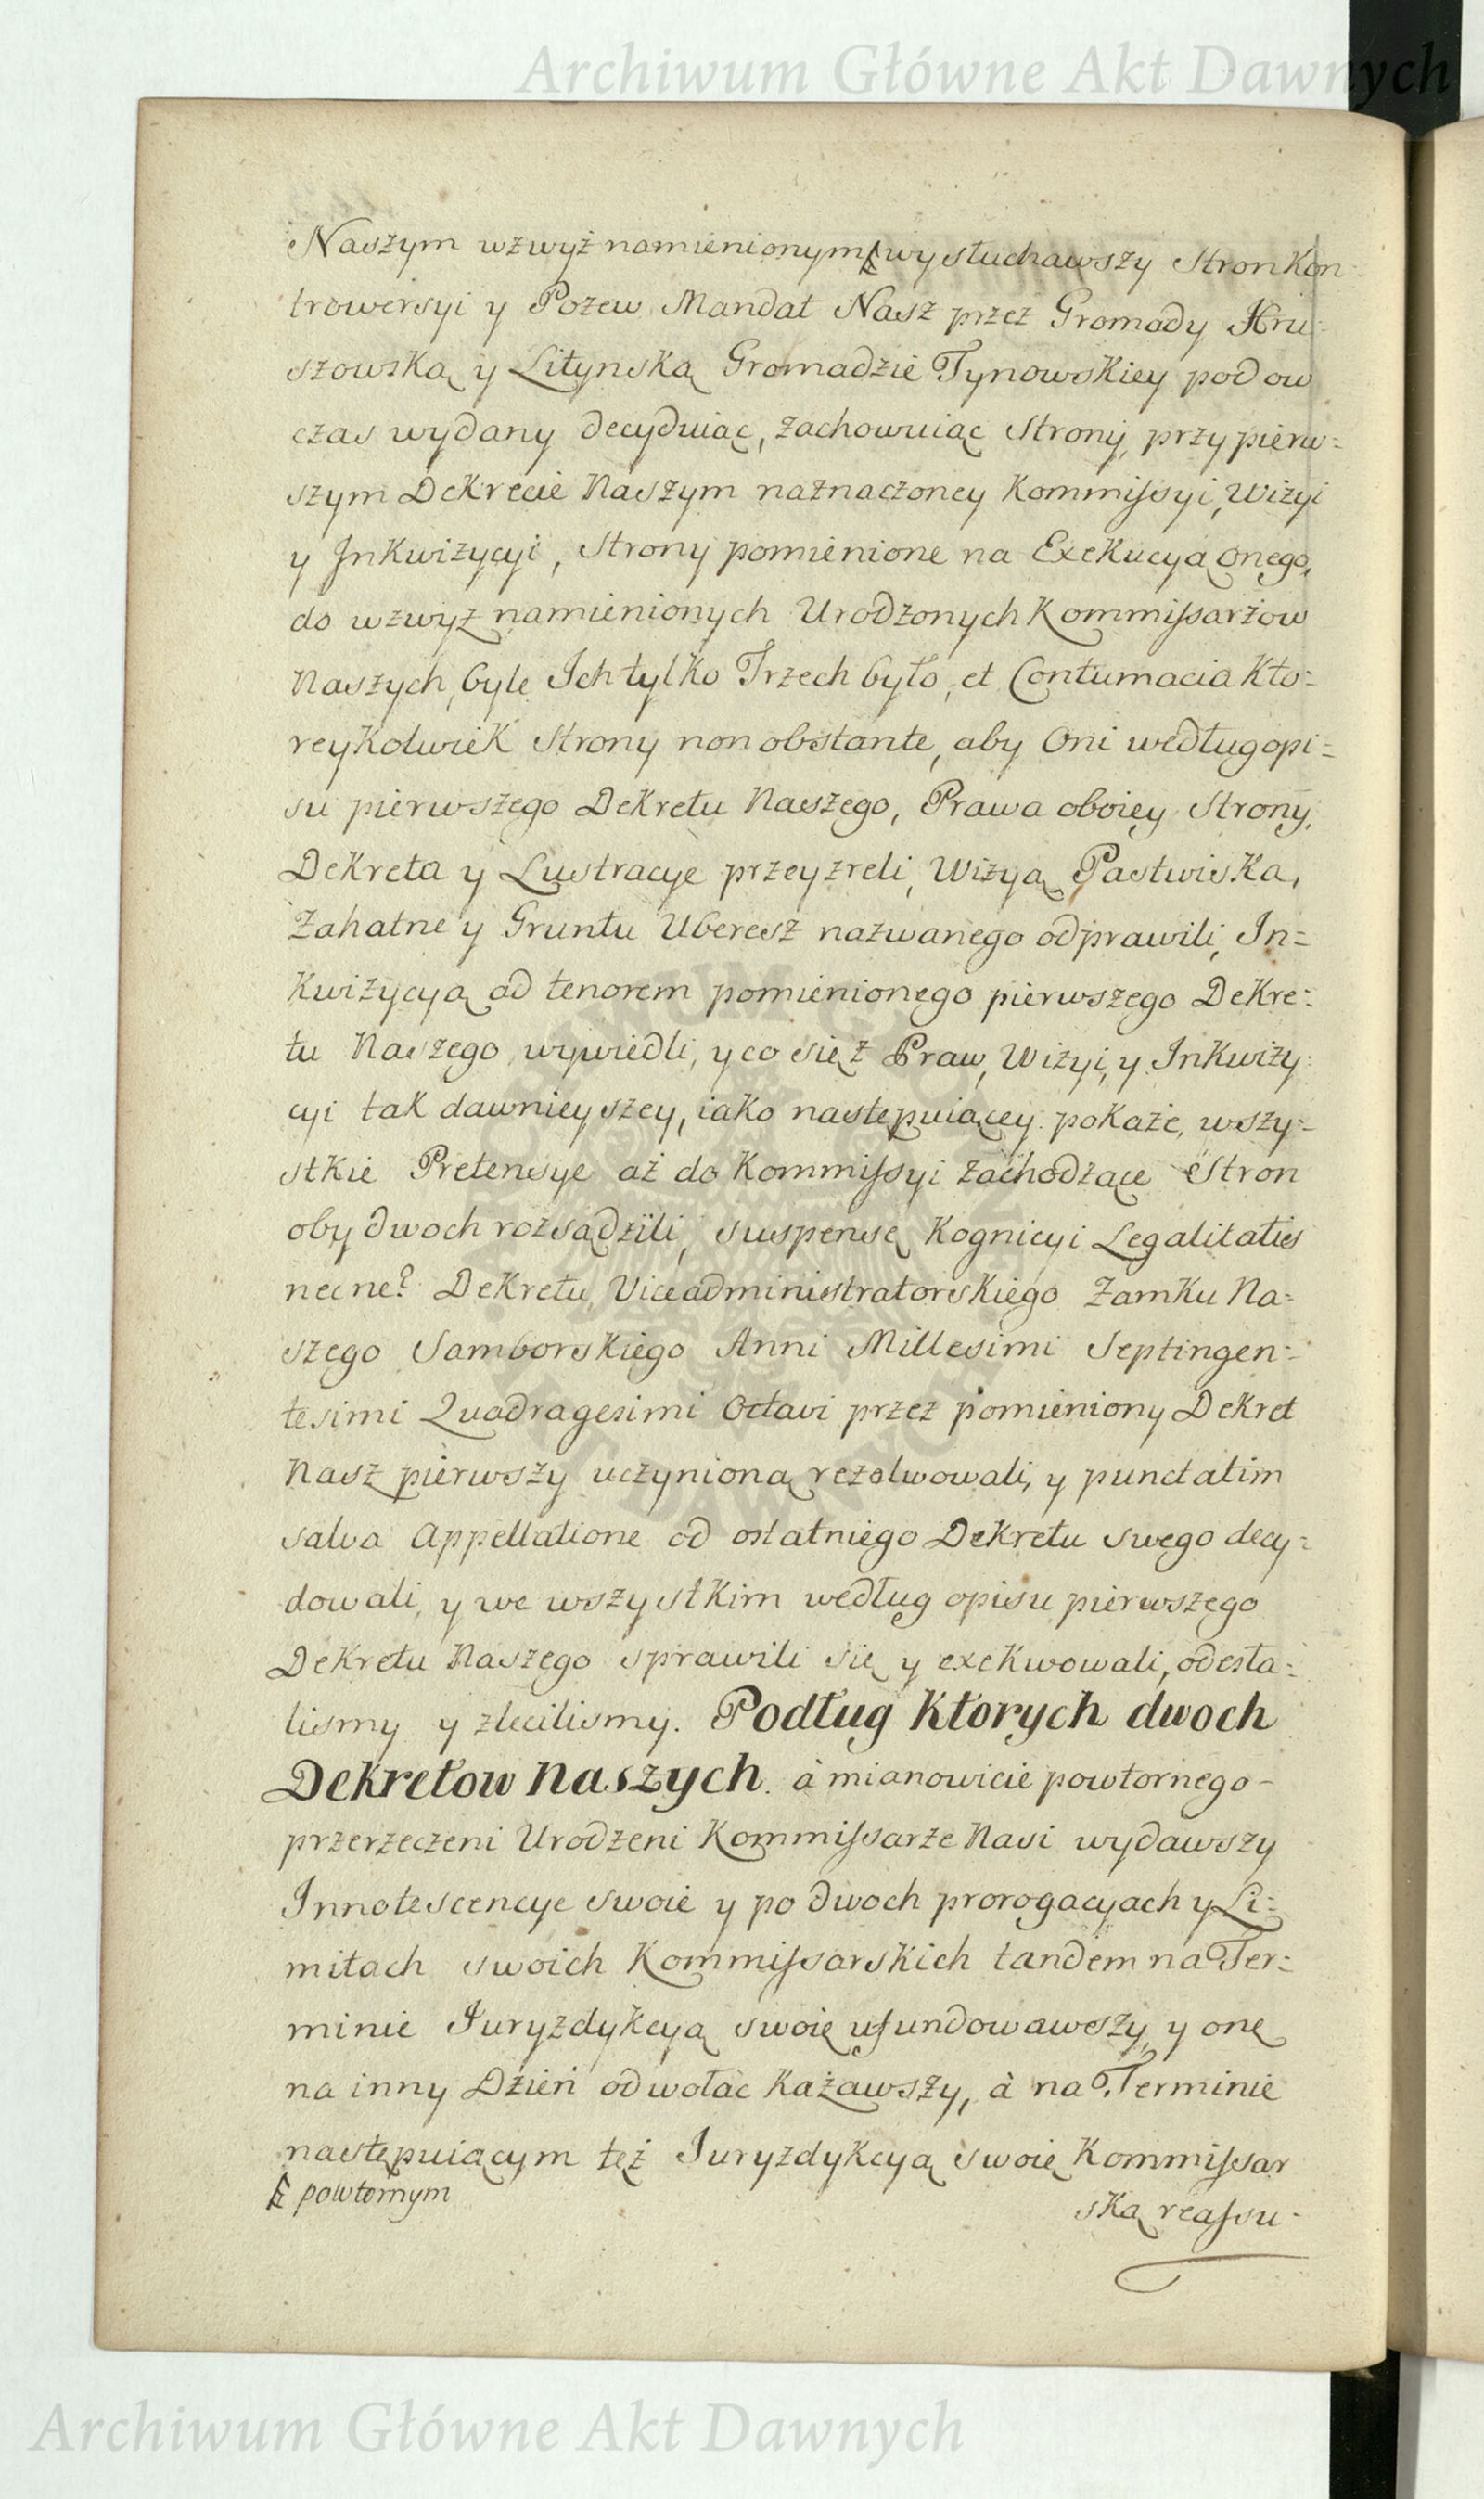 Archiwum Główne Akt Dawnych
Naszym wzwyż namienionym wysłuchawszy Stron Kon-
trowersyi y Pozew Mandat Nasz przez Gromady Hru-
szowską y Lityńską Gromadzie Tynowskiey pod ow
czas wydany decyduiąc, zachowuiąc Strony, przy pierw=
szym Dekrecie Naszym naznaczoney Kommissyi, Wizyi
y Inkwizycyi, Strony pomienione na Exekucyą onego,
do wzwyż namienionych Urodzonych Kommissarzow
Naszych, byle Ich tylko Trzech było, et Contumacia Kto=
reykolwiek Strony non obstante, aby Oni według opi=
su pierwszego Dekretu Naszego, Prawa oboiey Strony,
Dekreta y Lustracye przeyzreli, Wizyą Pastwiska,
Zahatne y Gruntu Uberesz nazwanego odprawili, In=
kwizycyą ad tenorem pomienionego pierwszego Dekre=
tu Naszego wywiedli, y co się z Praw, Wizyi, y Inkwizy=
cyi tak dawnieyszey, iako następuiącey pokaże, wszy=
stkie Pretensye aż do Kommissyi zachodzące Stron
obydwoch rozsądzili, suspensę Kognicyi Legalitatis
necne? Dekretu Viceadministratorskiego Zamku Na=
szego Samborskiego Anni Millesimi Septingen=
tesimi Quadragesimi Octavi przez pomieniony Dekret
Nasz pierwszy uczynioną rezolwowali, y punctatim
salva Appellatione od ostatniego Dekretu swego decy=
dowali, y we wszystkim według opisu pierwszego
Dekretu Naszego sprawili się y exekwowali, odesła=
lismy y zlecilismy. Podług Ktorych dwoch
Dekretow Naszych. à mianowicie powtornego-
przerzeczeni Urodzeni Kommissarze Nasi wydawszy
Innotescencye swoie y po dwoch prorogacyach y Li=
mitach swoich Kommissarskich tandem na Ter=
minie Iuryzdykcyą swoię ufundowawszy, y onę
na inny Dzień odwołac kazawszy, à na Terminie
następuiącym też Iuryzdykcyą swoię Kommissar
powtornym
ską reassu-
Archiwum Główne Akt Dawnych